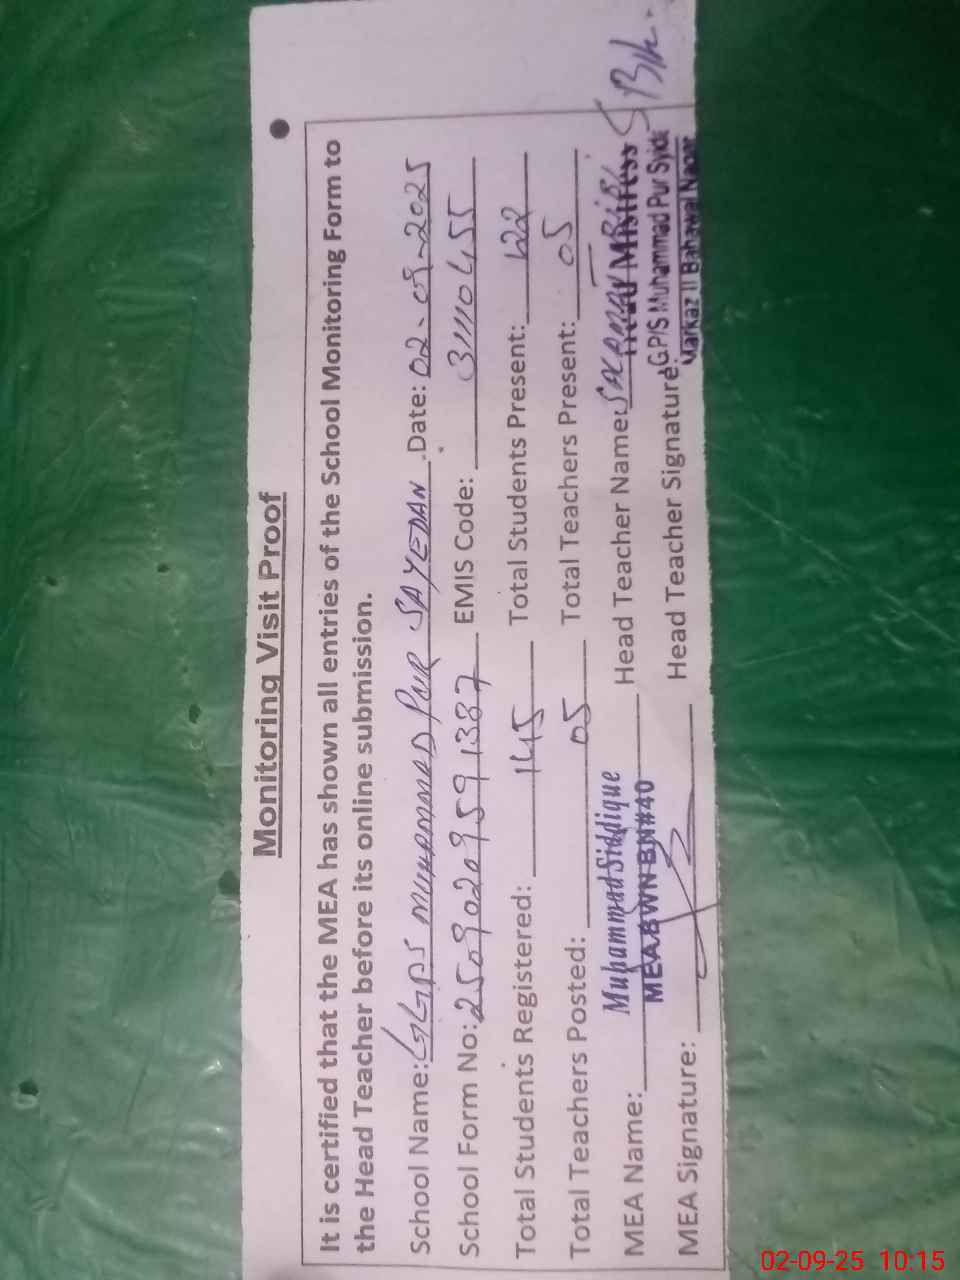 Monitoring Visit Proof
It is certified that the MEA has shown all entries of the School Monitoring Form to
the Head Teacher before its online submission.
School Name: GGPS MUHAMMAD PUR SAYEDAN Date: 02-09-2025
School Form No: 25090209591387 EMIS Code: 31110455
Total Students Registered: 145 Total Students Present: 122
Total Teachers Posted: 05 Total Teachers Present: 05
MEA Name: Muhammad Siddique Head Teacher Name: BIBI
MEA BWN BN#40 Head Mistress
MEA Signature: Head Teacher Signature:
GP/S Muhammad Pur Syida
Markaz II Bahawal Nagar
02-09-25 10:15